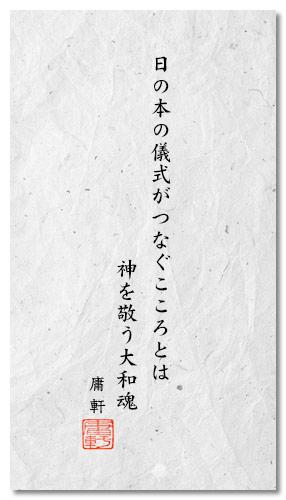 日の本の儀式がつなぐこころとは
神を敬う大和魂
庸軒
庸軒